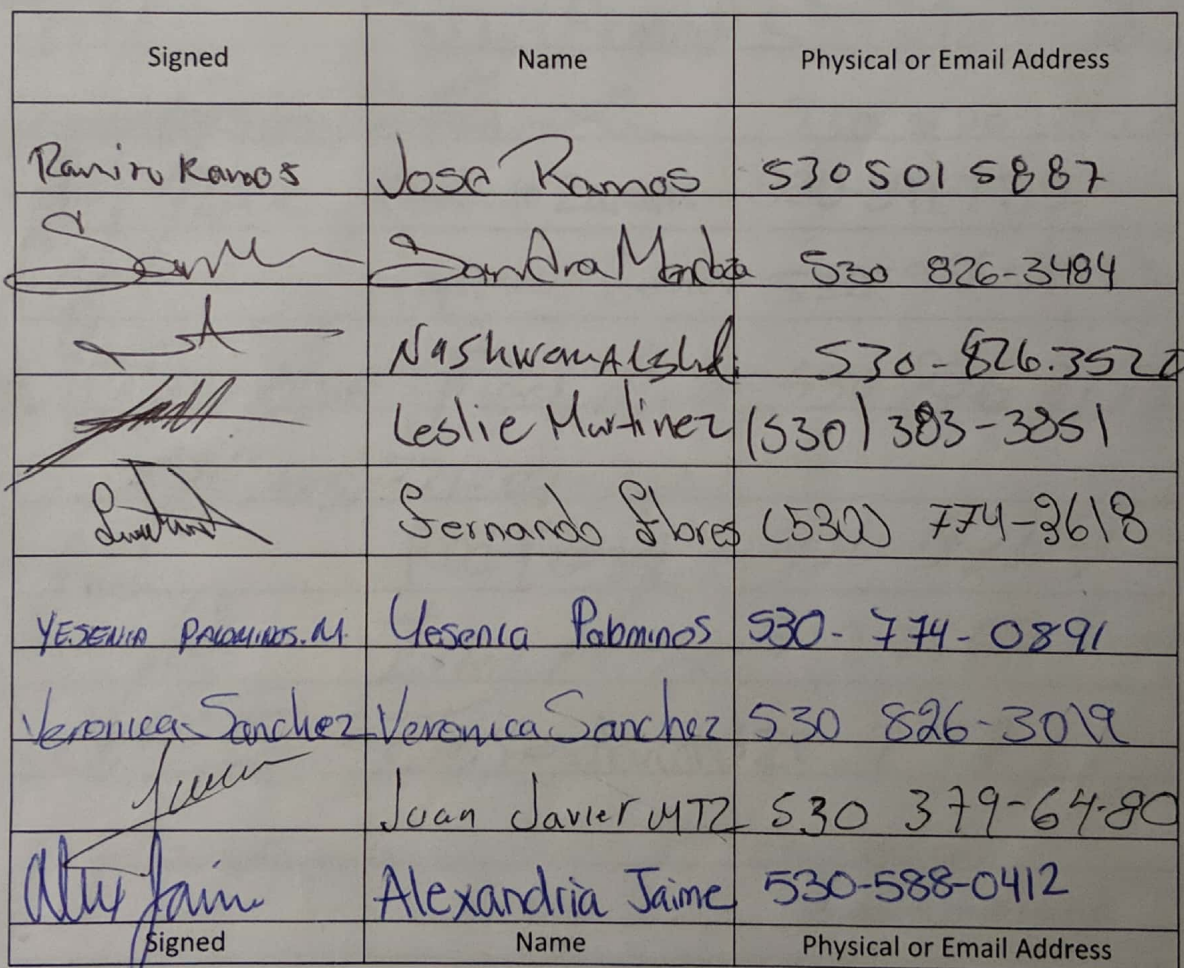 Signed Name Physical or Email Address
Ramiro Ramos Jose Ramos 530 501 5887
Sandra Mendoza 530 826-3484
Nashwan 530-826.3522
Leslie Martinez (530) 383-3851
Fernando Flores (530) 774-3618
YESENIA PALOMINOS.M. Yesenia Palominos 530-774-0891
Veronica Sanchez Veronica Sanchez 530 826-3019
Juan Javier MTZ 530 379-64-80
Alex Jaime Alexandria Jaime 530-588-0412
Signed Name Physical or Email Address